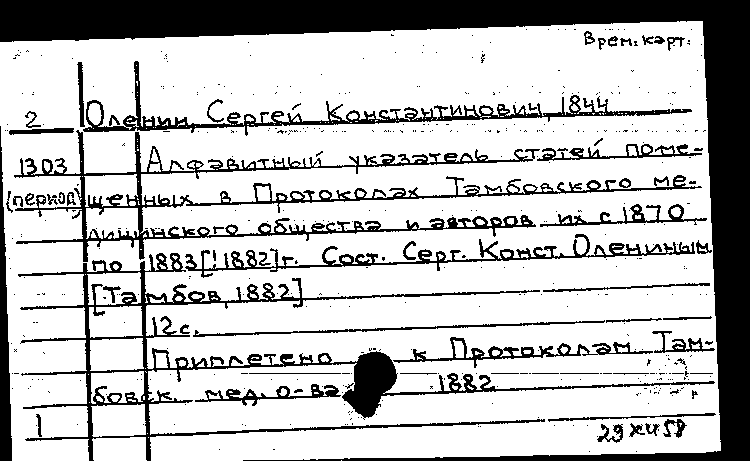 Врем. карт.
2 Оленин, Сергей Константинович, 1844
1303 Алфавитный указатель статей поме-
(период) щенных в Протоколах Тамбовского ме-
дицинского общества и авторов их с 1870
по 1883[!1882]г. Сост. Серг. Конст. Олениным
[Тамбов, 1882]
12с.
Приплетено к Протоколам Там-
бовск. мед. о-ва 1882
1
29 XII 58